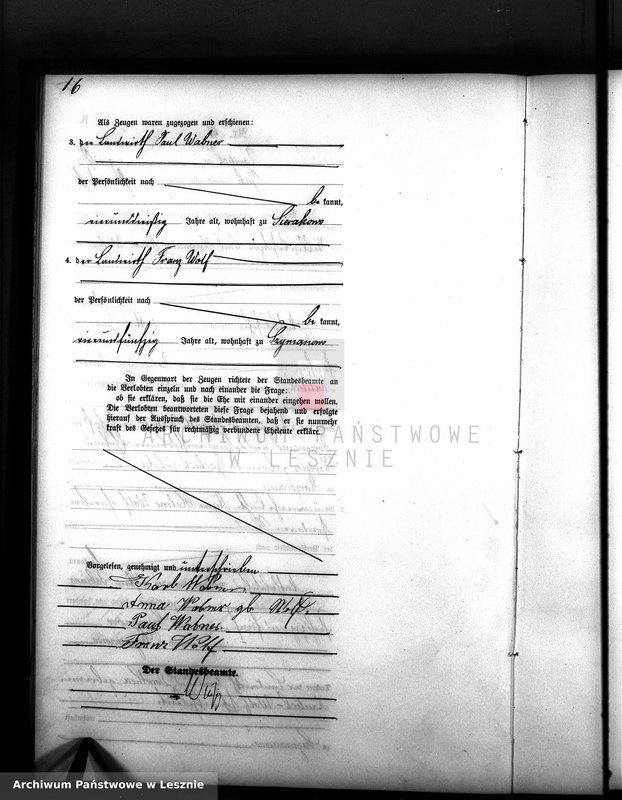 16
Als Zeugen waren zugezogen und erschienen:
3. der Landwirth Paul Wabner
der Persönlichkeit nach
be kannt,
einunddreißig Jahre alt, wohnhaft zu Sierakowo
4. der Landwirth Franz Wolf
der Persönlichkeit nach
be kannt,
vierundfünfzig Jahre alt, wohnhaft zu Szymanowo
In Gegenwart der Zeugen richtete der Standesbeamte an
die Verlobten einzeln und nach einander die Frage:
ob sie erklären, daß sie die Ehe mit einander eingehen wollen.
Die Verlobten beantworteten diese Frage bejahend und erfolgte
hierauf der Ausspruch des Standesbeamten, daß er sie nunmehr
kraft des Gesetzes für rechtmäßig verbundene Eheleute erkläre.
ARCHIWUM PAŃSTWOWE
W LESZNIE
Vorgelesen, genehmigt und unterschrieben
Karl Wabner
Anna Wabner gb Wolf.
Paul Wabner
Franz Wolf
Der Standesbeamte.
Archiwum Państwowe w Lesznie